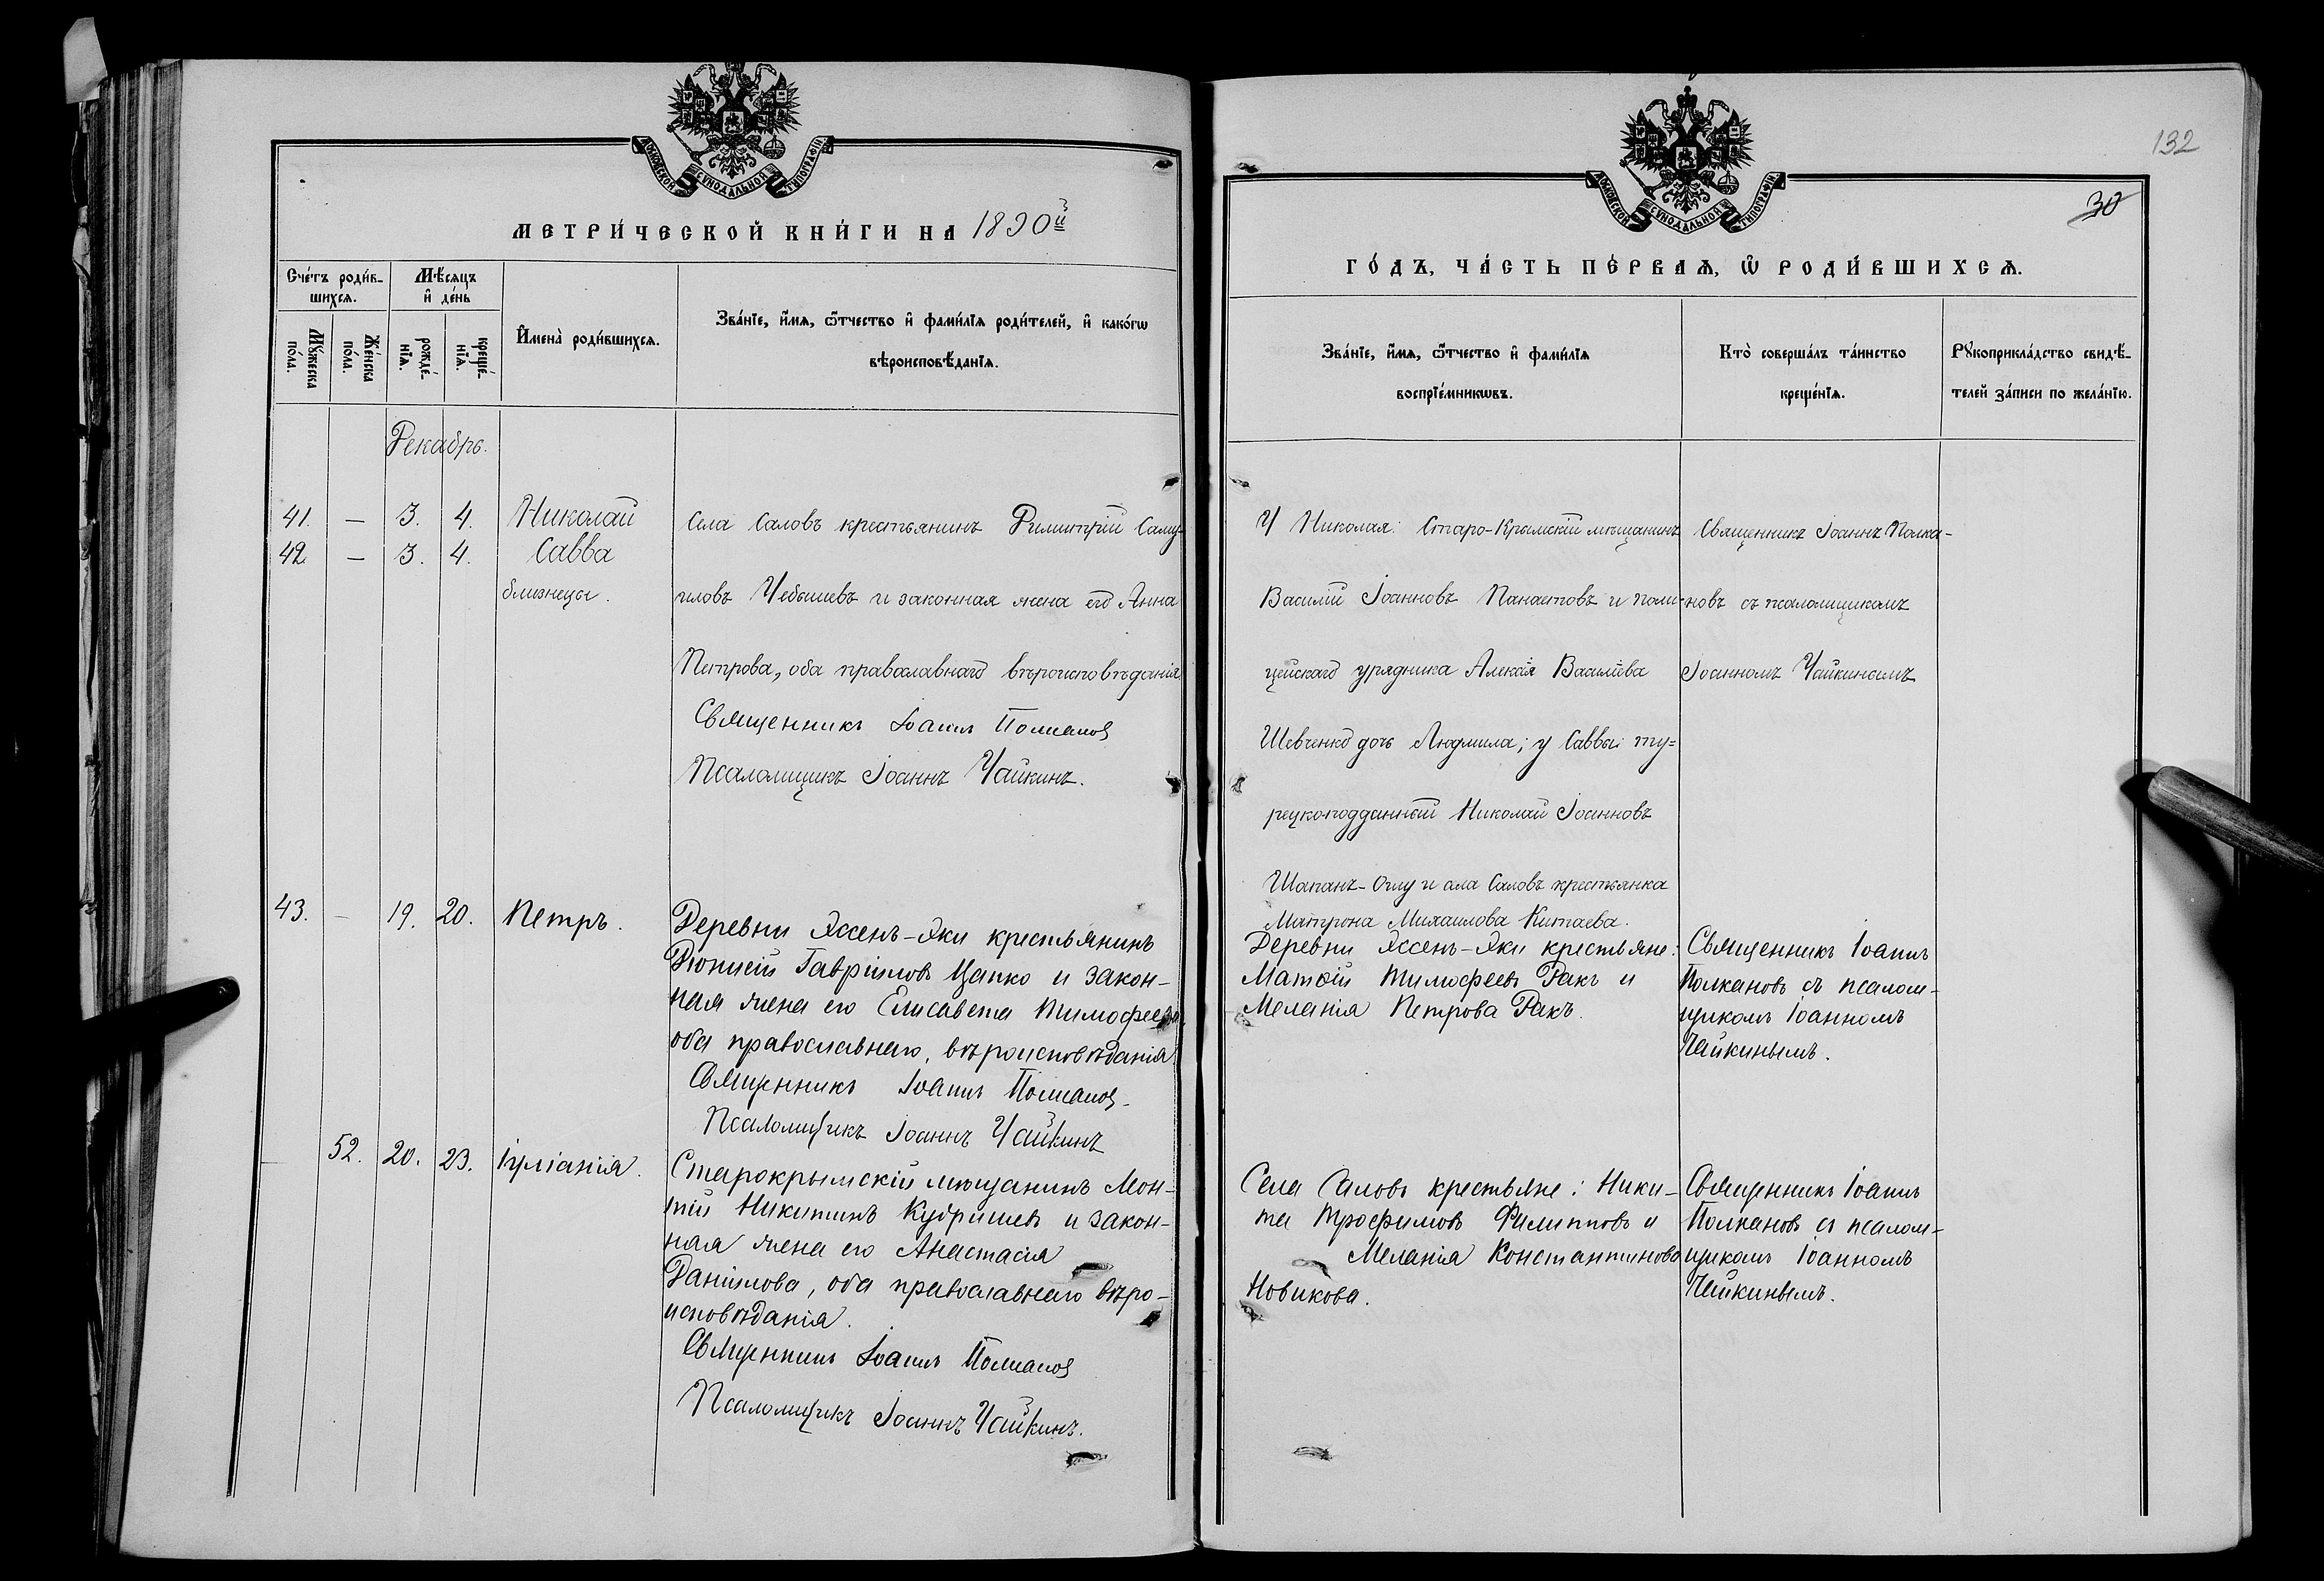 МОСКОВСКОЙ СУНОДАЛЬНОЙ ТИПОГРАФІИ
МЕТРИ́ЧЕСКОЙ КНИ́ГИ НА 1890й
Сче́тъ роди́в-
шихся.
Мѣ́сяцъ
и҆ де́нь
Мꙋ́жеска
по́ла.
Же́нска
по́ла.
рожде́-
нїѧ.
креще́-
нїѧ.
И҆мена̀ роди́вшихсѧ.
Зва́нїе, и҆́мѧ, ѿтчество и҆ фами́лїѧ роди́телей, и҆ како́гѡ
вѣроисповѣ́данїѧ.
Декабрь.
41. — 3. 4. Николай
42. — 3. 4. Савва
близнецы.
Села Саловъ крестьянинъ Димитрій Саму-
иловъ Чебышевъ и законная жена его Анна
Петрова, оба православнаго вѣроисповѣданія
Священникъ Іоаннъ Полкановъ
Псаломщикъ Іоаннъ Чайкинъ.
43. — 19. 20. Петръ.
Деревни Яссенъ-Яки крестьянинъ
Діонисій Гавріиловъ Цапко и закон-
ная жена его Елисавета Тимофеева,
оба православнаго, вѣроисповѣданія
Священникъ Іоаннъ Полкановъ
Псаломщикъ Іоаннъ Чайкинъ
52. 20. 23. Іуліанія.
Старокрымскій мѣщанинъ Мон-
тій Никитинъ Кудришевъ и закон-
ная жена его Анастасія
Даніилова, оба православнаго вѣро-
исповѣданія.
Священникъ Іоаннъ Полкановъ
Псаломщикъ Іоаннъ Чайкинъ.
132
30
МОСКОВСКОЙ СУНОДАЛЬНОЙ ТИПОГРАФІИ
ГО́ДЪ, ЧА́СТЬ ПЕ́РВАѦ, Ѡ҆ РОДИ́ВШИХСѦ.
Зва́нїе, и҆́мѧ, ѿтчество и҆ фами́лїѧ
воспрїе́мникѡвъ.
Кто̀ соверша́лъ та́инство
креще́нїѧ.
Рꙋкоприкла́дство свидѣ́-
телей за́писи по жела́нїю.
У Николая: Старо-Крымскій мѣщанинъ
Василій Іоанновъ Панаетовъ и поли-
цейскаго урядника Алексія Василіева
Шевченко дочь Людмила; у Саввы: ту=
рецкоподданный Николай Іоанновъ
Шапанъ-Оглу и села Саловъ крестьянка
Матрона Михаилова Китаева.
Священникъ Іоаннъ Полка-
новъ съ псаломщикомъ
Іоанномъ Чайкинымъ
Деревни Яссенъ-Яки крестьяне:
Матѳій Тимофеевъ Ракъ и
Меланія Петрова Ракъ.
Священникъ Іоаннъ
Полкановъ съ псалом-
щикомъ Іоанномъ
Чайкинымъ.
Села Саловъ крестьяне: Ники-
та Трофимовъ Филипповъ и
Меланія Константинова
Новикова.
Священникъ Іоаннъ
Полкановъ съ псалом-
щикомъ Іоанномъ
Чайкинымъ.